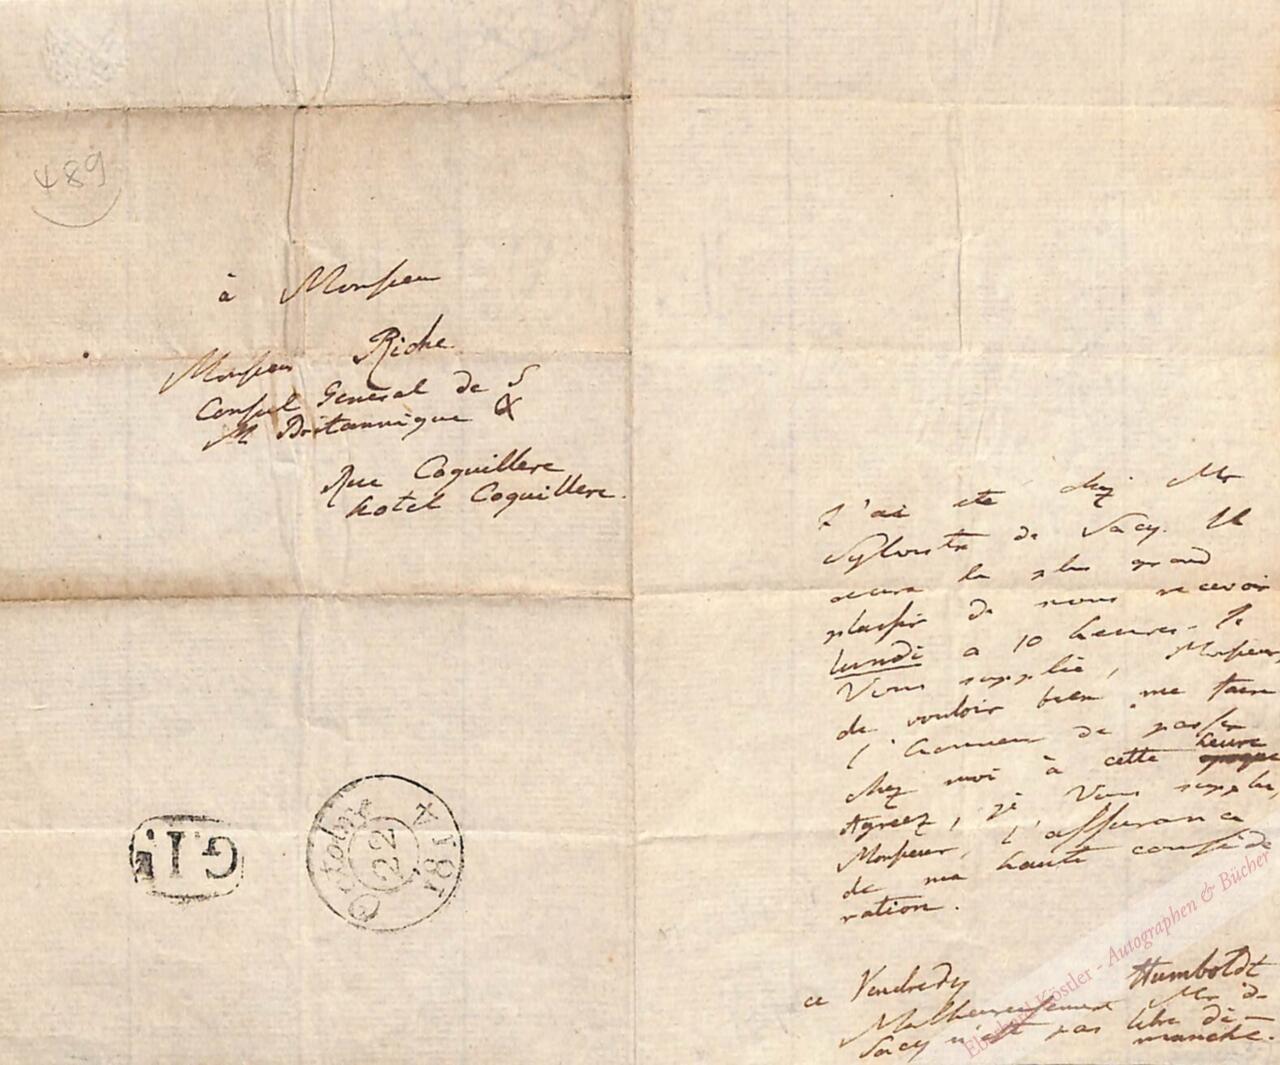 489
à Monsieur
Monsieur Riche
Consul General de S
M Britannique &
Rue Coquillere
hotel Coquillere.
G.I.
Octobre
22
1814
J'ai eté chez Mr
Sylvestre de Sacy. Il
aura le plus grand
plaisir de nous recevoir
lundi a 10 heures. Je
Vous supplie, Monsieur,
de vouloir bien me faire
l'honneur de passer
chez moi à cette heure
Agreez, je Vous supplie,
Monsieur, l'assurance
de ma haute conside
ration.
ce Vendredy Humboldt
Malheureusement Mr de
Sacy n'est pas libre di-
manche.
Eberhard Köstler - Autographen & Bücher